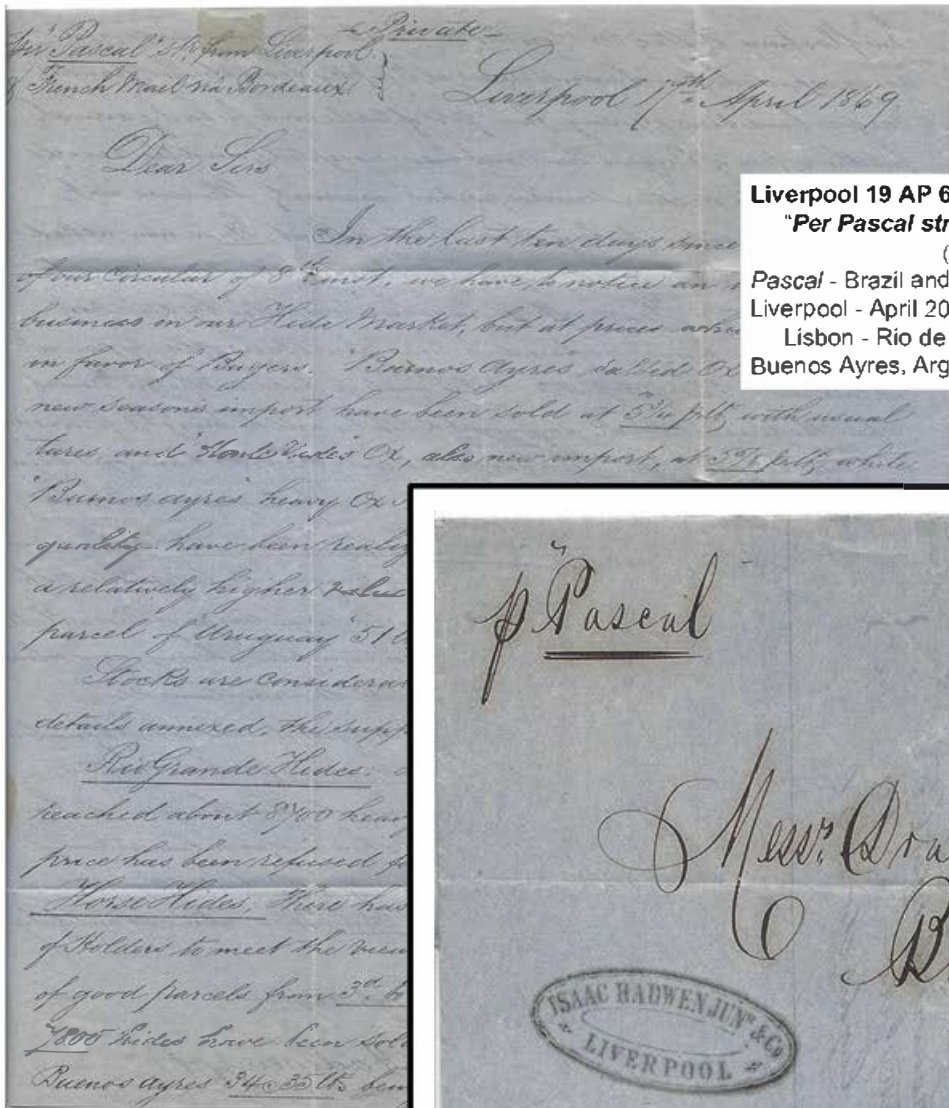 Private
"Pascal" str. from Liverpool
French Mail via Bordeaux
Liverpool 17th April 1869.
Dear Sirs
In the last ten days since
of our Circular of 8th inst. we have to notice an
business in our Hide Market, but at prices
in favor of Buyers. "Buenos Ayres" salted Ox
new seasons import have been sold at with usual
tares, and Ox, also new import, at while
"Buenos Ayres" heavy Ox
quality have been
a relatively higher value
parcel of "Uruguay" 51
Stocks are
details annexed, the
Rio Grande Hides.
reached about 8700 heavy
price has been refused
Horse Hides. There has
of Holders to meet the
of good parcels from 3d.
7800 Hides have been sold
Buenos Ayres 34 a 35 lb.
Liverpool 19 AP 6
"Per Pascal str
(
Pascal - Brazil and
Liverpool - April 20
Lisbon - Rio de
Buenos Ayres, Arg
p "Pascal"
Messrs. Dra
B
ISAAC HADWEN JUNR. & Co
LIVERPOOL